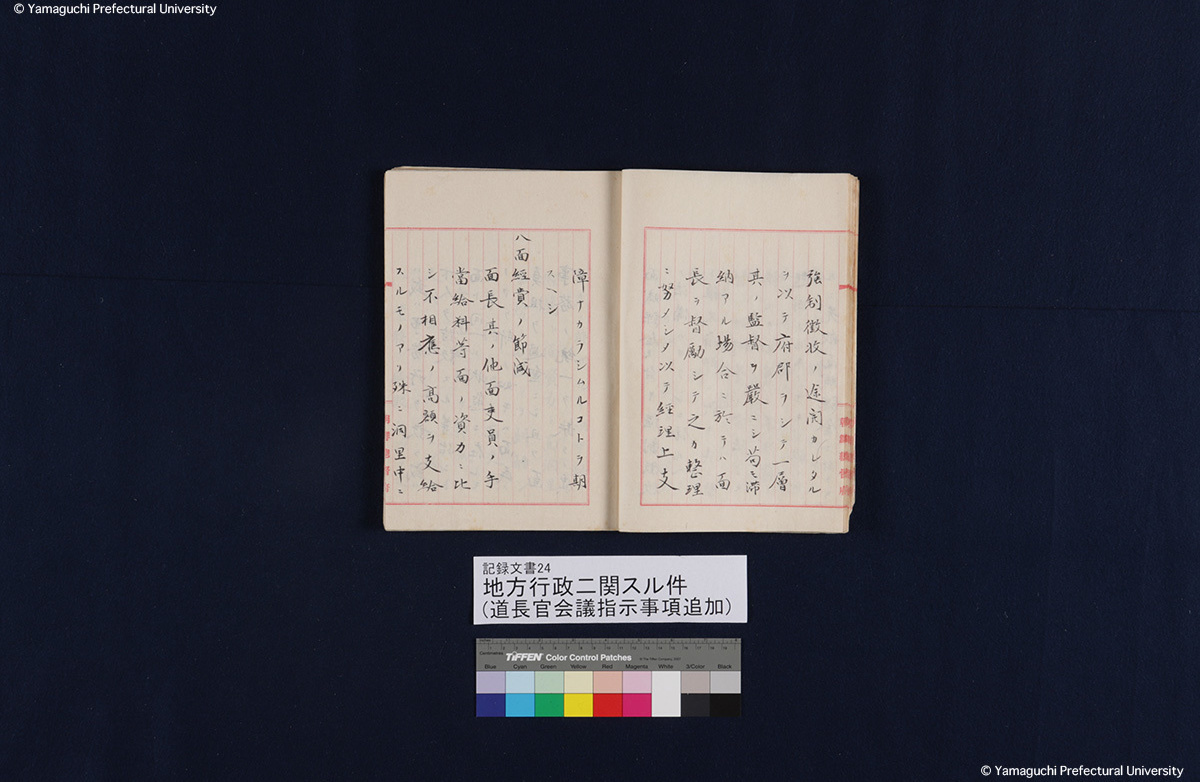 © Yamaguchi Prefectural University
強制徴収ノ途開カレタル
ヲ以テ府郡ヲシテ一層
其ノ監督ヲ厳ニシ苟モ滞
納アル場合ニ於テハ面
長ヲ督励シテ之カ整理
ニ努メシメ以テ経理上支
障ナカラシムルコトヲ期
スヘシ
八面経費ノ節減
面長其ノ他面吏員ノ手
當給料等面ノ資力ニ比
シ不相應ノ高額ヲ支給
スルモノアリ殊ニ洞里中ニ
記録文書24
地方行政ニ関スル件
(道長官会議指示事項追加)
Centimetres
TIFFEN Color Control Patches
Blue Cyan Green Yellow Red Magenta White 3/Color Black
© Yamaguchi Prefectural University